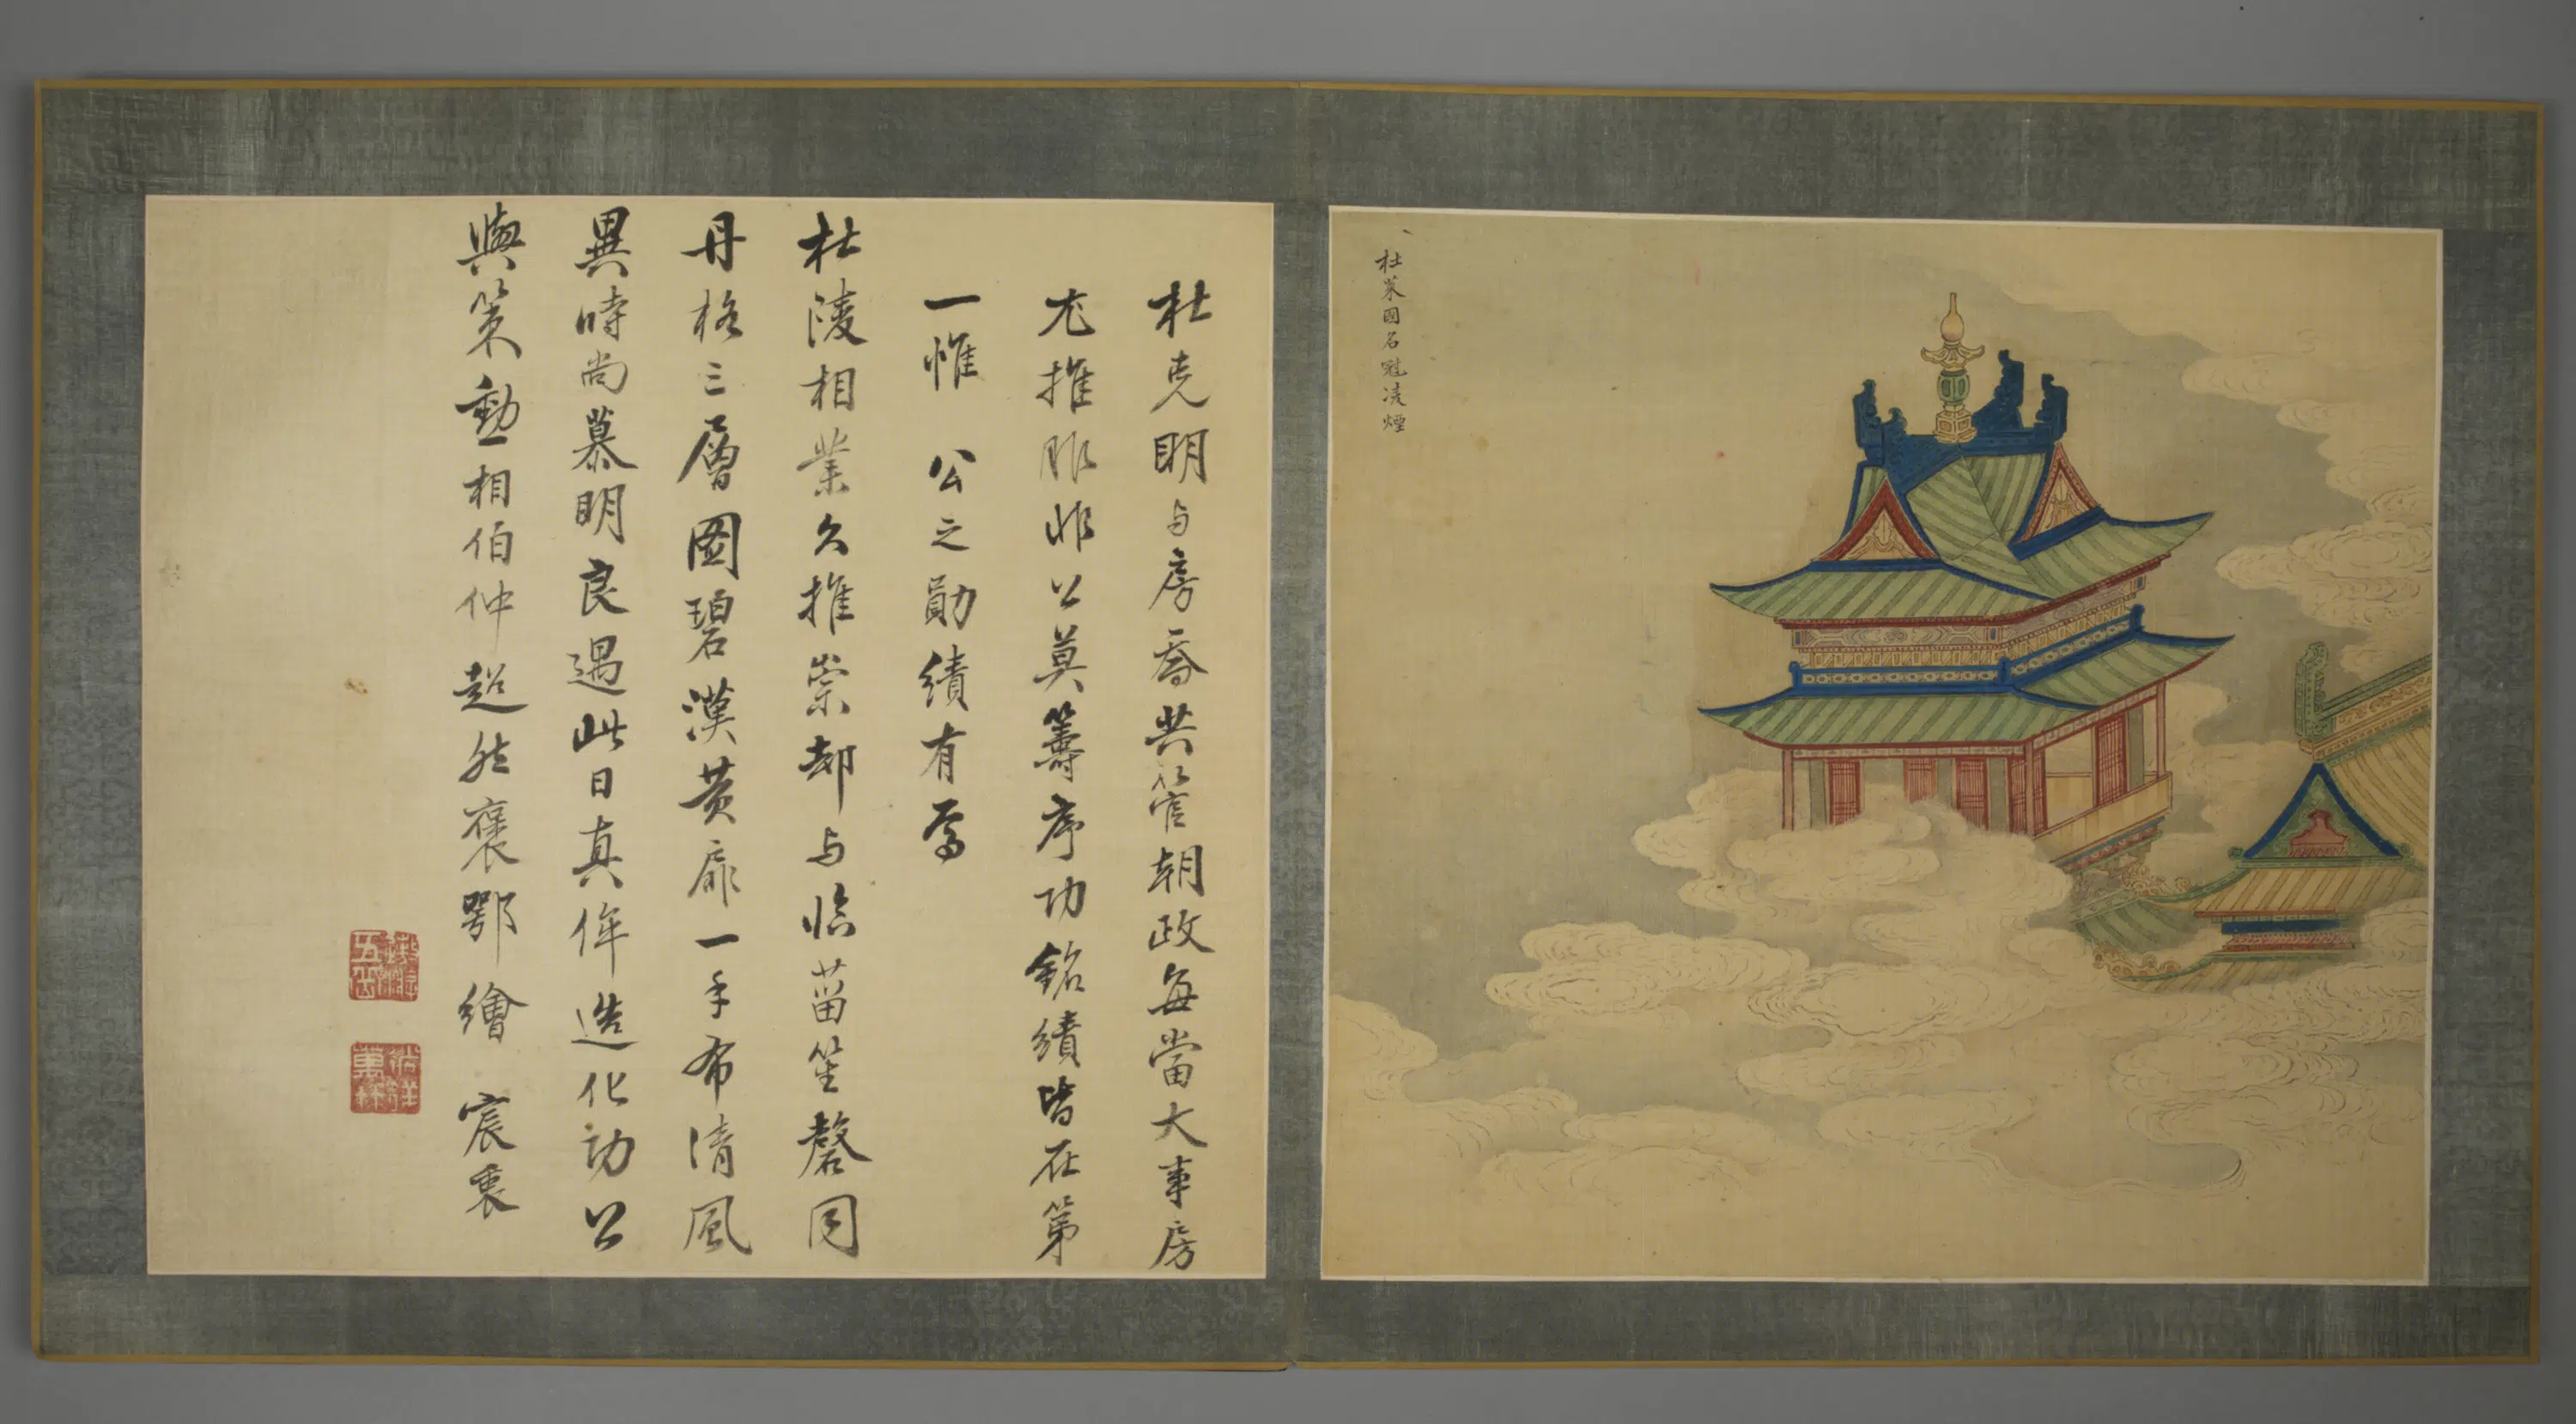 杜萊國名冠凌煙
杜克明与房喬共管朝政每當大事房
尤推服非公莫籌序功銘績皆在第
一惟 公之勛績有焉
杜陵相業久推崇却与临菑笙磬同
丹格三層圖碧漢黃扉一手布清風
異時尚慕明良遇此日真侔造化功公
與策勳相伯仲超然褒鄂繪宸衷